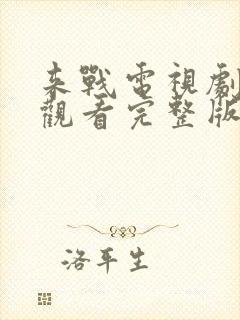 来戰電視劇
觀看完整版
洛平生